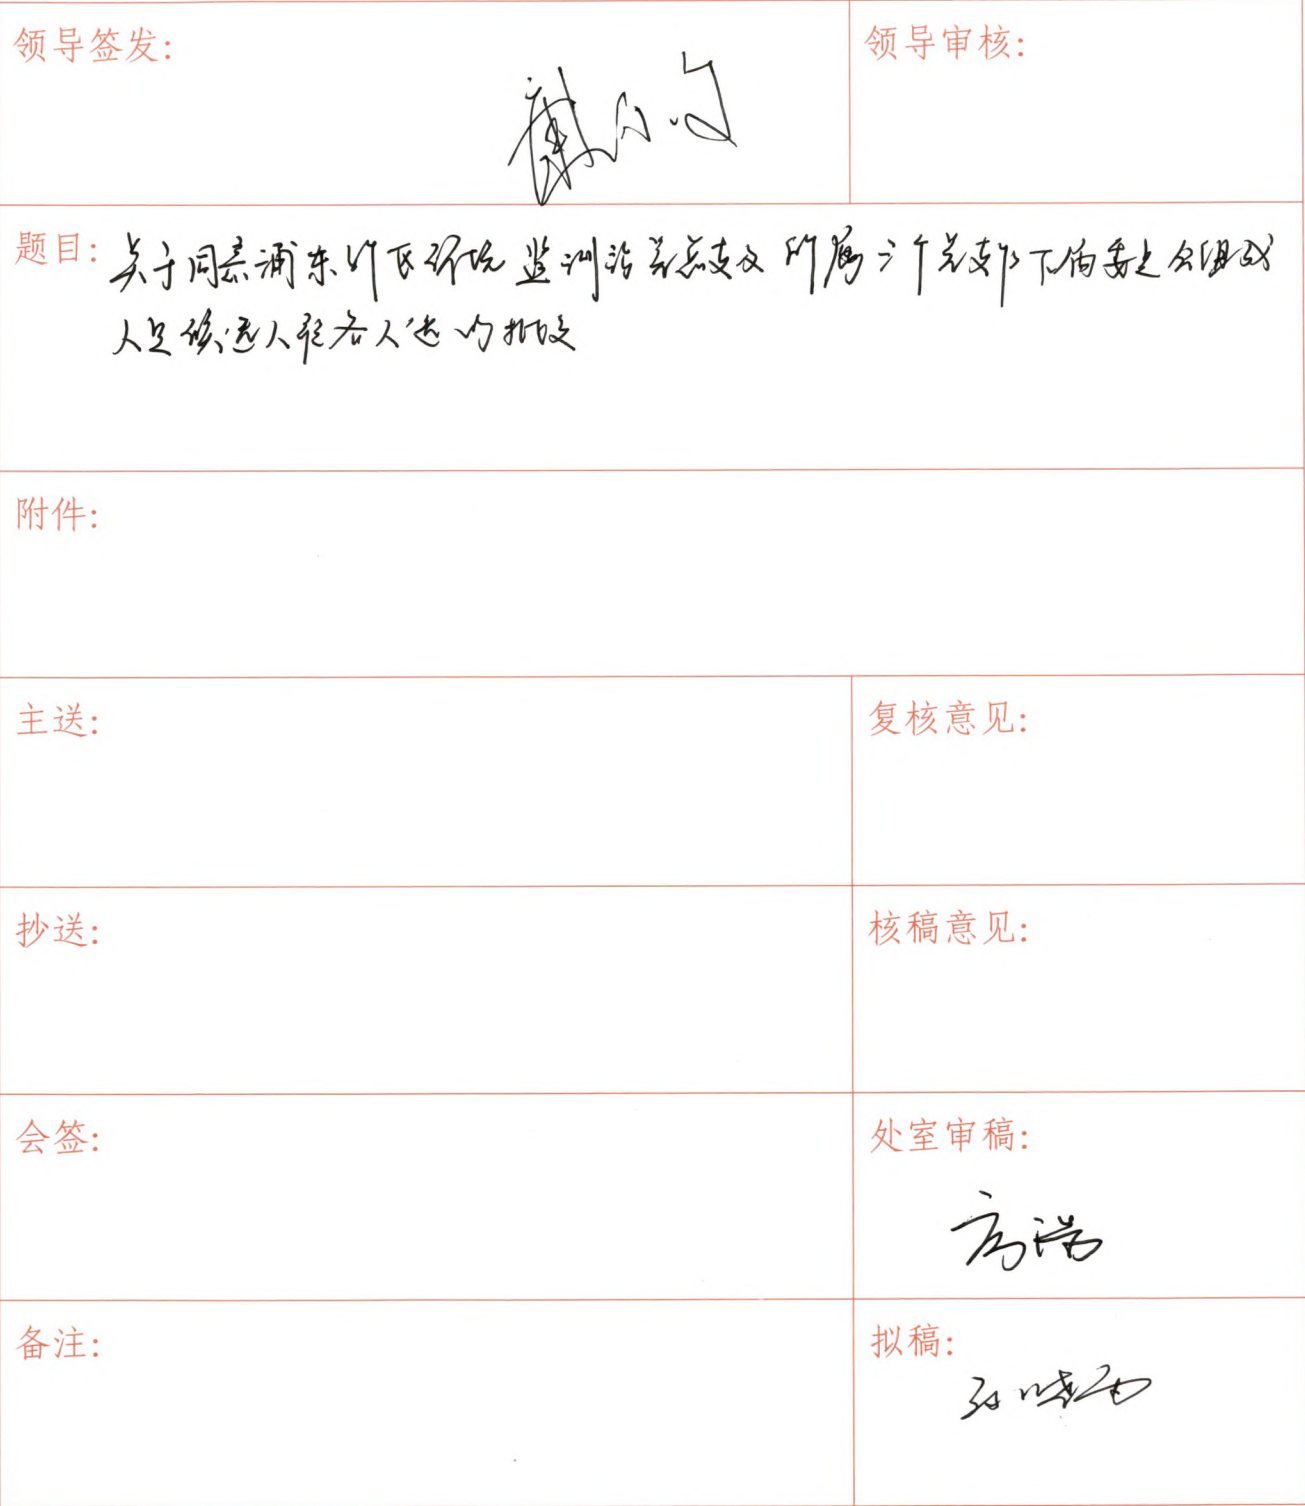 领导签发:
领导审核:
题目: 关于同意浦东新区环境监测站党总支及所属三个党支部下届委员会组成
人员候选人预备人选的批复
附件:
主送:
复核意见:
抄送:
核稿意见:
会签:
处室审稿:
备注:
拟稿: